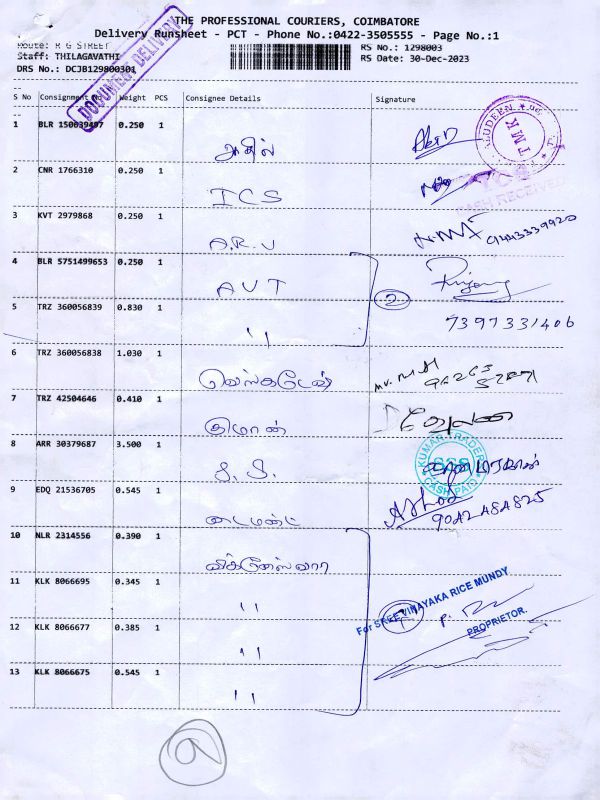 THE PROFESSIONAL COURIERS, COIMBATORE
Delivery Runsheet - PCT - Phone No.:0422-3505555 - Page No.:1
Route: R G STREET
RS No.: 1298003
Staff: THILAGAVATHI
RS Date: 30-Dec-2023
DRS No.: DCJB129800301
DOCUMENT DELIVERY
S No Consignment No Weight PCS Consignee Details Signature
1 BLR 150639497 0.250 1
TMK
CASH RECEIVED
2 CNR 1766310 0.250 1 ICS
3 KVT 2979868 0.250 1 A.R.V
4 BLR 5751499653 0.250 1 AVT
2
5 TRZ 360056839 0.830 1 "
7397331406
6 TRZ 360056838 1.030 1 வெங்கடேஷ்
7 TRZ 42504646 0.410 1 குமரன்
8 ARR 30379687 3.500 1
KUMAR TRADERS
SSS
CASH PAID
9 EDQ 21536705 0.545 1 டைமண்ட் Ashok
9042484825
10 NLR 2314556 0.390 1 விக்னேஸ்வரா
11 KLK 8066695 0.345 1 "
For SREE VINAYAKA RICE MUNDY
12 KLK 8066677 0.385 1 "
PROPRIETOR.
13 KLK 8066675 0.545 1 "